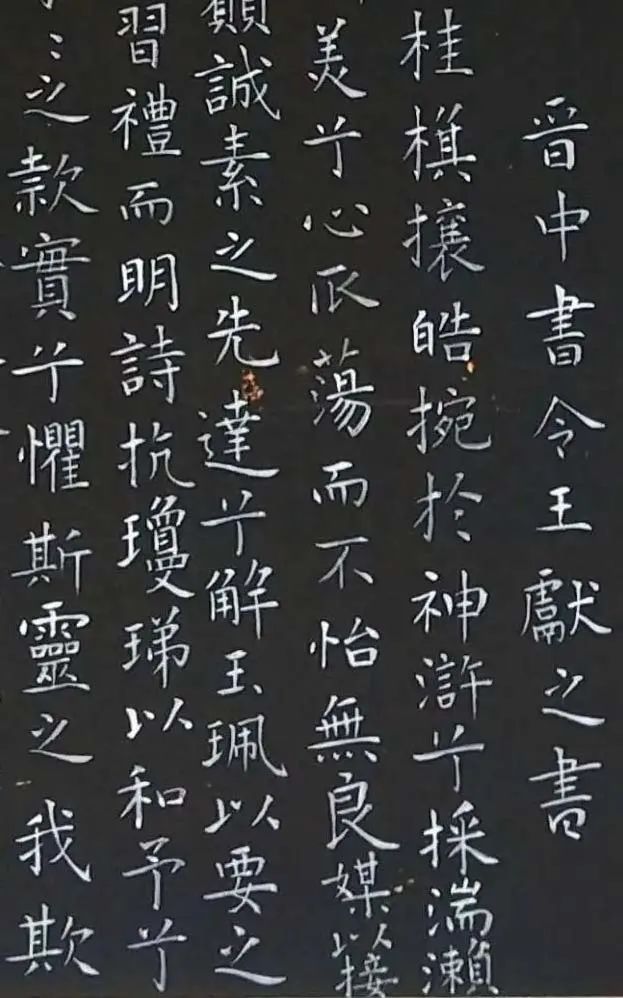 晉中書令王獻之書
桂棋攘皓捥於神滸兮採湍瀨
美兮心瓜蕩而不怡無良媒以接
願誠素之先達兮解玉珮以要之
習禮而明詩抗瓊珶以和予兮
之款實兮懼斯靈之我欺